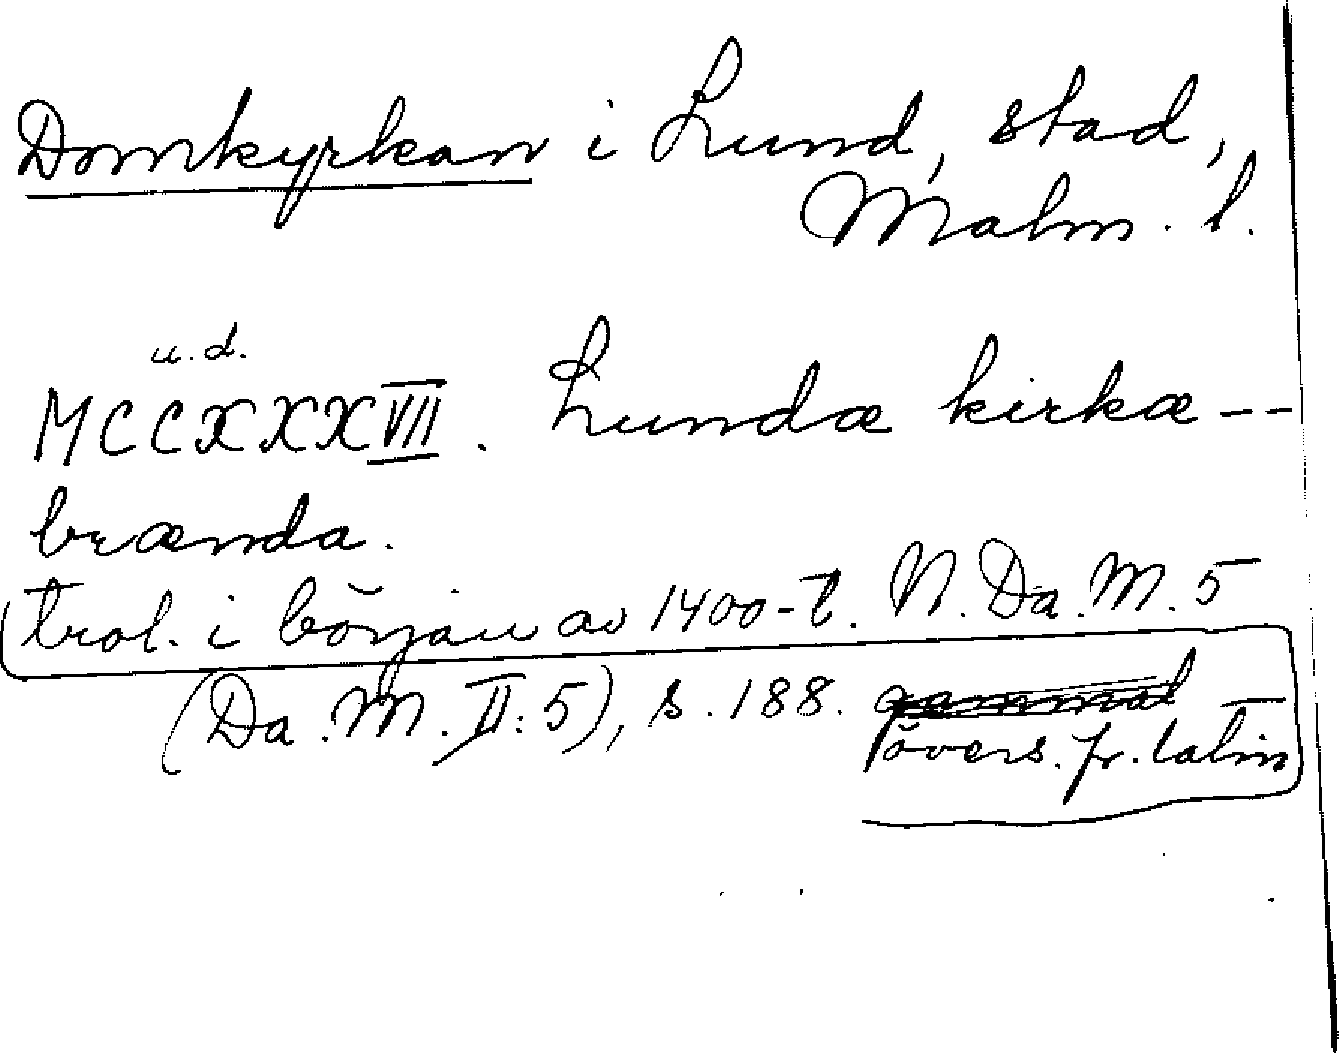 Domkyrkan i Lund, stad,
Malm. l.
u.d.
MCCXXXVII. Lundæ kirkæ --
brænda.
trol. i början av 1400-t. N. Da. M. 5
(Da. M. II: 5), s. 188.
övers. fr. latin